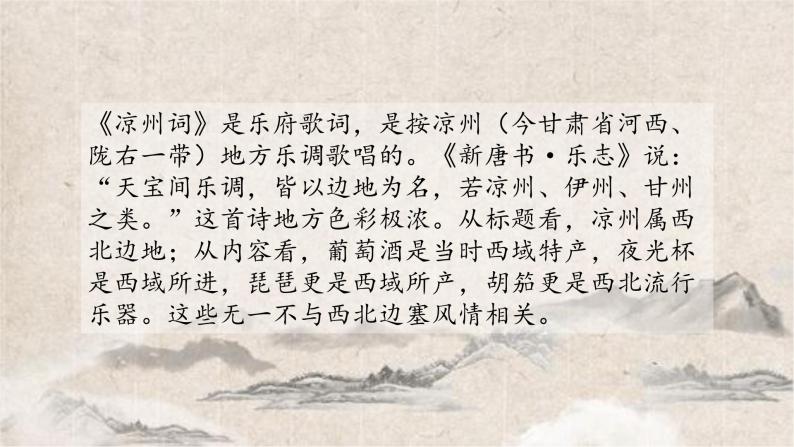 《凉州词》是乐府歌词，是按凉州（今甘肃省河西、
陇右一带）地方乐调歌唱的。《新唐书·乐志》说：
“天宝间乐调，皆以边地为名，若凉州、伊州、甘州
之类。”这首诗地方色彩极浓。从标题看，凉州属西
北边地；从内容看，葡萄酒是当时西域特产，夜光杯
是西域所进，琵琶更是西域所产，胡笳更是西北流行
乐器。这些无一不与西北边塞风情相关。